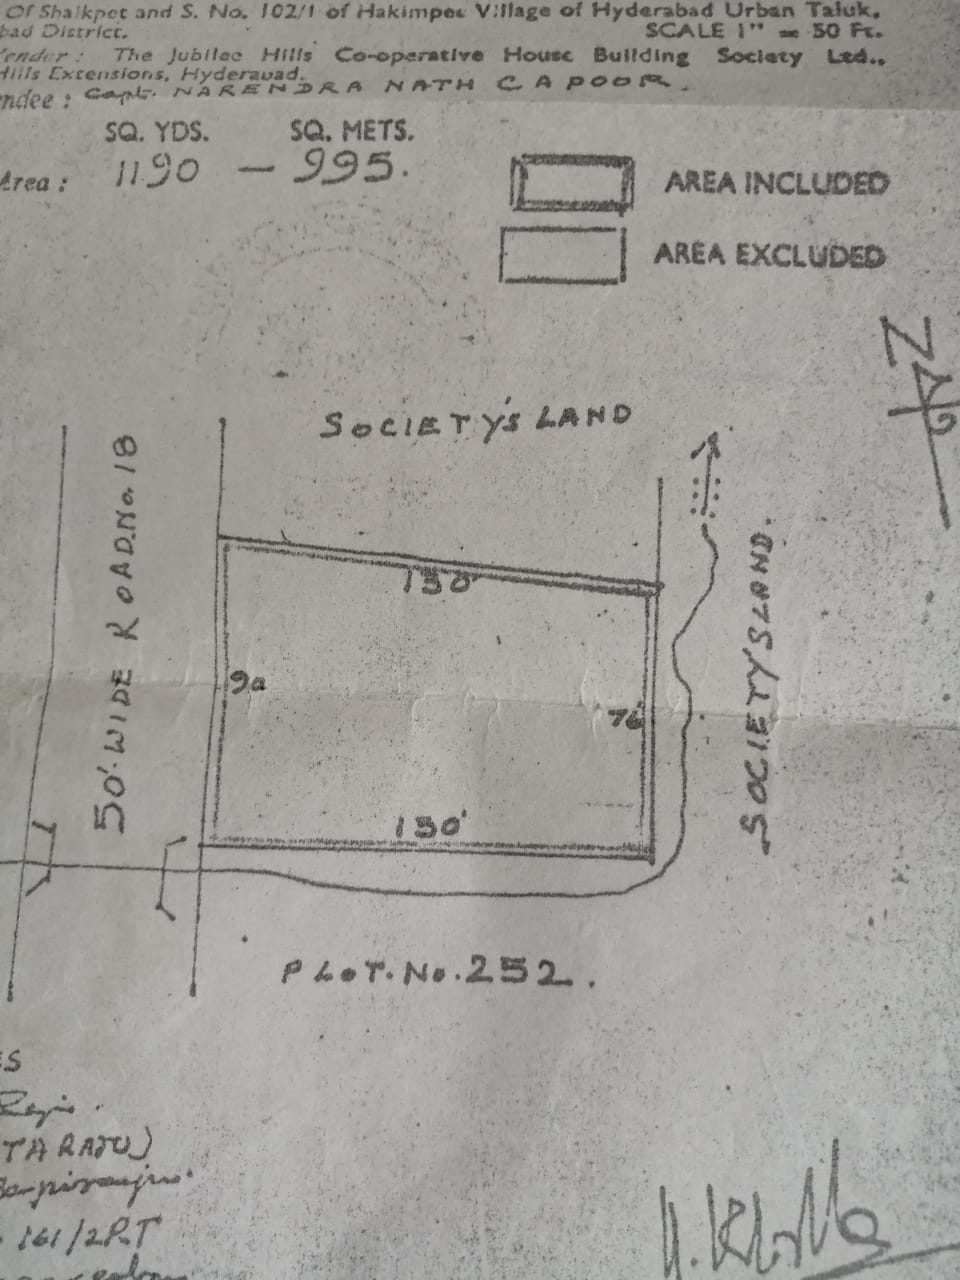 Of Shaikpet and S. No. 102/1 of Hakimpet Village of Hyderabad Urban Taluk,
bad District.
SCALE 1" = 50 Ft.
Vender : The Jubilee Hills Co-operative House Building Society Ltd.,
Hills Extensions, Hyderabad.
ndee : Capt. NARENDRA NATH CAPOOR.
SQ. YDS. SQ. METS.
Area : 1190 — 995.
AREA INCLUDED
AREA EXCLUDED
SOCIETY'S LAND
50' WIDE ROAD.No.18
130'
90
76'
130'
SOCIETY'S LAND.
PLOT.No.252.
ES
TARAJU)
161/2RT